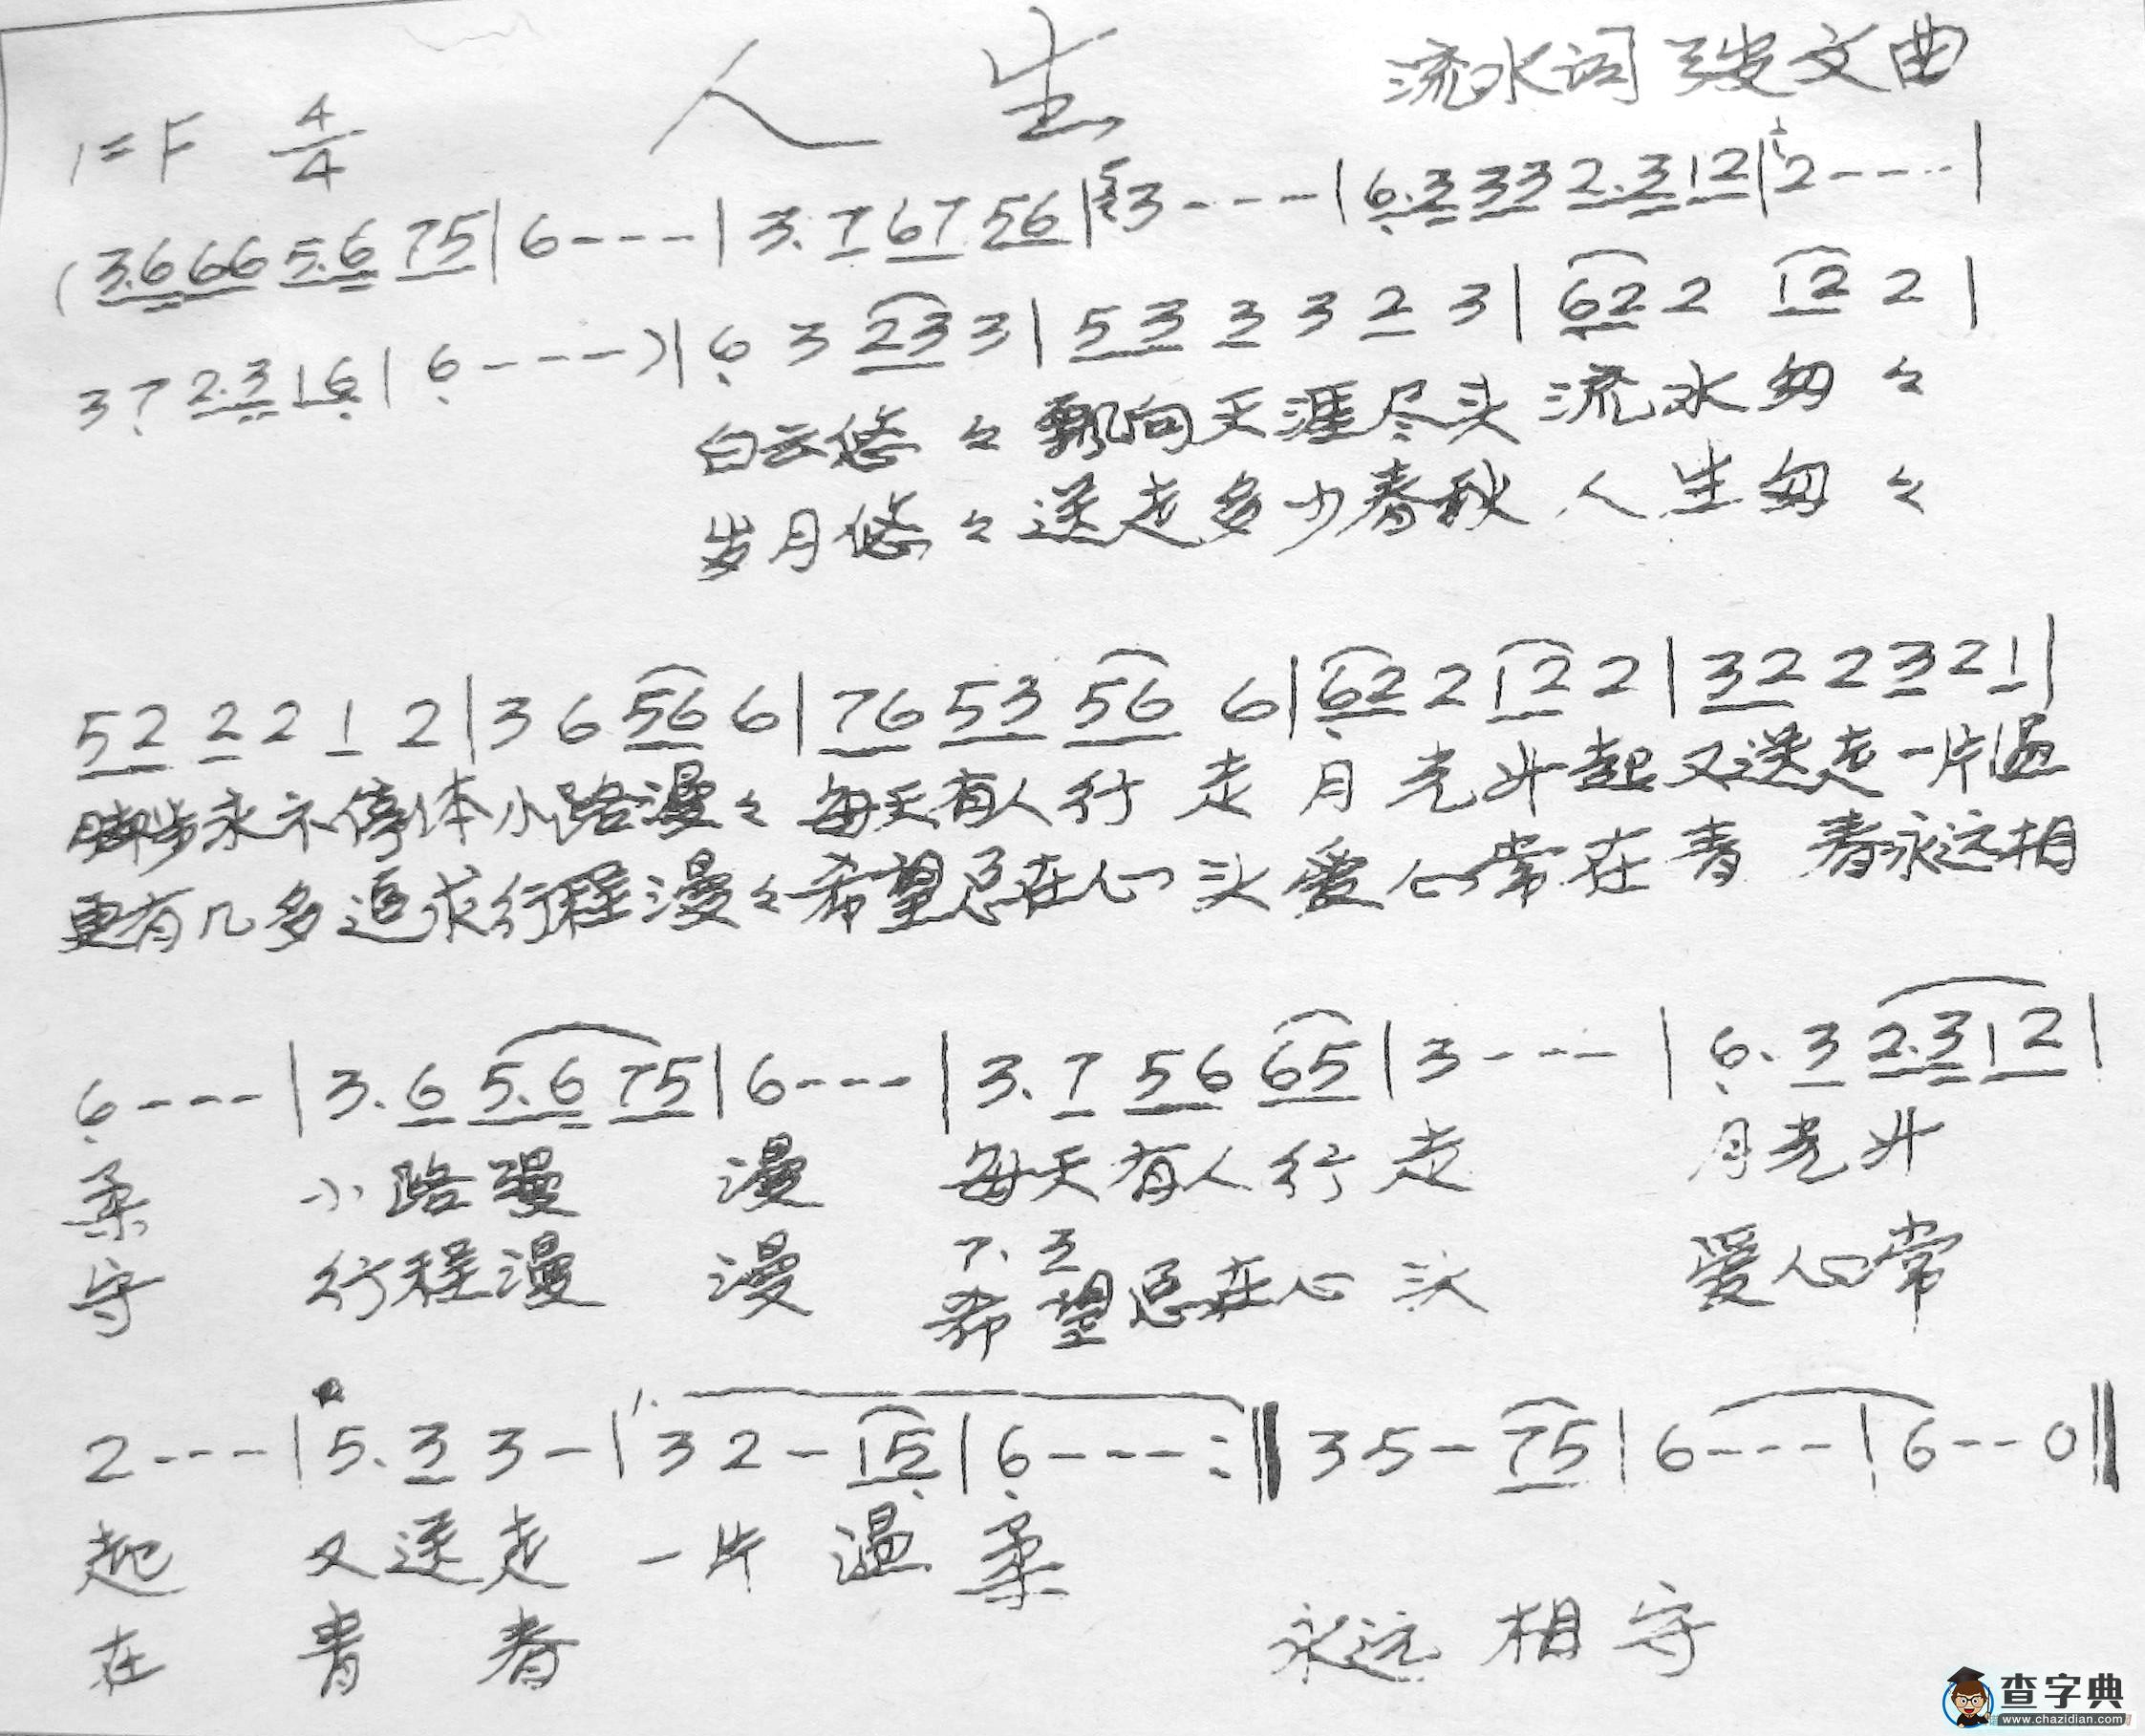 人 生 流水词 文曲
1=F 4/4
(3.6 6 6 5.6 7 5|6----|3.7 6 7 5 6|3----|6.3 3 3 2.3 1 2|2----|
3 7 2.3 1 6|6----)|6 3 2 3 3|5 3 3 3 2 3|6 2 2 1 2 2|
白云悠々飘向天涯尽头流水匆々
岁月悠々送走多少春秋人生匆々
5 2 2 2 1 2|3 6 5 6 6|7 6 5 3 5 6 6|6 2 2 1 2 2|3 2 2 3 2 1|
脚步永不停休小路漫々每天有人行走月光升起又送走一片温
更有几多追求行程漫々希望总在心头爱心常在青春永远相
6----|3.6 5.6 7 5|6----|3.7 5 6 6 5|3----|6.3 2.3 1 2|
柔 小路漫 漫 每天有人行走 月光升
7.3
守 行程漫 漫 希望总在心头 爱心常
2----|5.3 3-|1.3 2-1 5|6----:‖3 5-7 5|6----|6--0‖
起 又送走 一片 温柔
在 青 春 永远相守
查字典
www.chazidian.com